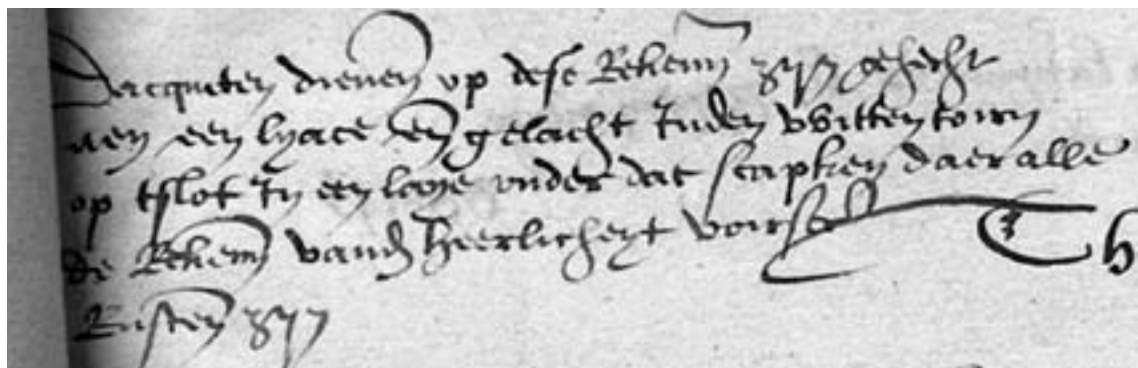 Dacquiten dienen op dese Rekenn zijn gehecht
aen een lyace en gelacht Inden witten torn
op tslot In een laye onder dat scapken daer alle
de Rekenn vand heerlicheyt voirsc
Rusten zijn